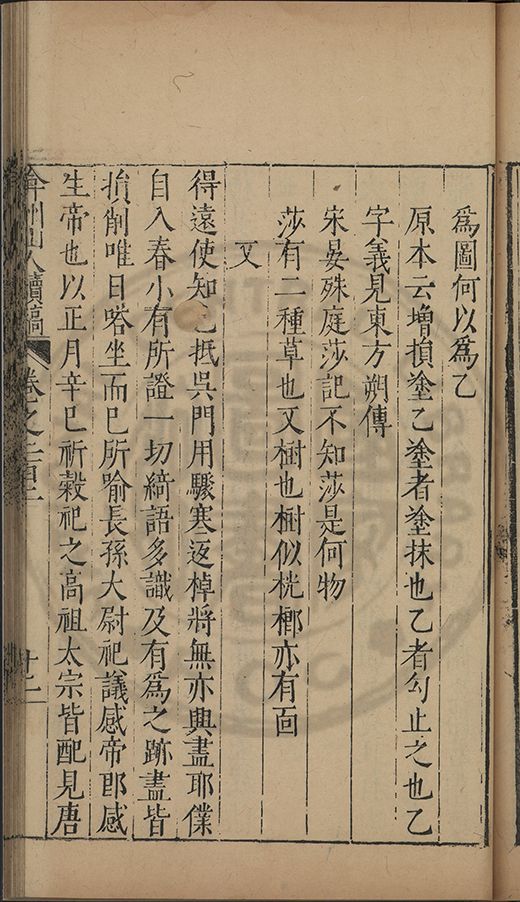 爲圖何以爲乙
原本云增損塗乙塗者塗抹也乙者勾止之也乙
字義見東方朔傳
宋晏殊庭莎記不知莎是何物
莎有二種草也又樹也樹似桄榔亦有面
又
得遠使知已抵吳門用驟寒返棹將無亦興盡耶僕
自入春小有所證一切綺語多識及有爲之跡盡皆
損削唯日嗒坐而已所喻長孫大尉祀議感帝卽感
生帝也以正月辛巳祈穀祀之高祖太宗皆配見唐
弇州山人續稿 卷之二百二 廿二